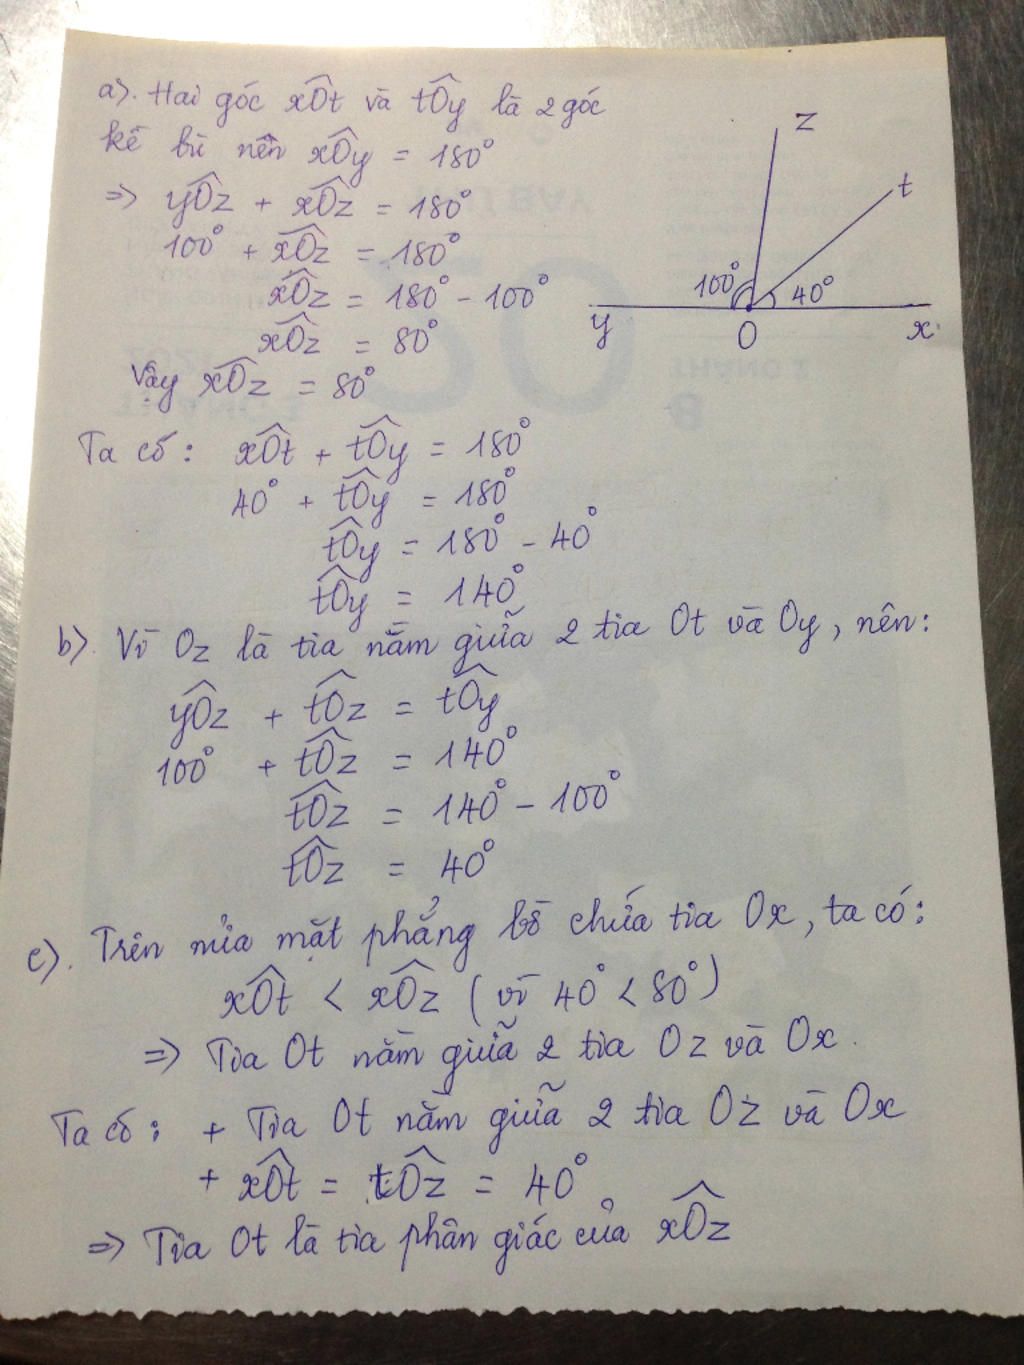 a). Hai góc xOt và tOy là 2 góc
kề bù nên xOy = 180°
=> yOz + xOz = 180°
100° + xOz = 180°
xOz = 180° - 100°
xOz = 80°
Vậy xOz = 80°
z
t
100°
40°
y
O
x
Ta có: xOt + tOy = 180°
40° + tOy = 180°
tOy = 180° - 40°
tOy = 140°
b). Vì Oz là tia nằm giữa 2 tia Ot và Oy, nên:
yOz + tOz = tOy
100° + tOz = 140°
tOz = 140° - 100°
tOz = 40°
c). Trên nửa mặt phẳng bờ chứa tia Ox, ta có:
xOt < xOz (vì 40° < 80°)
=> Tia Ot nằm giữa 2 tia Oz và Ox.
Ta có: + Tia Ot nằm giữa 2 tia Oz và Ox
+ xOt = tOz = 40°
=> Tia Ot là tia phân giác của xOz